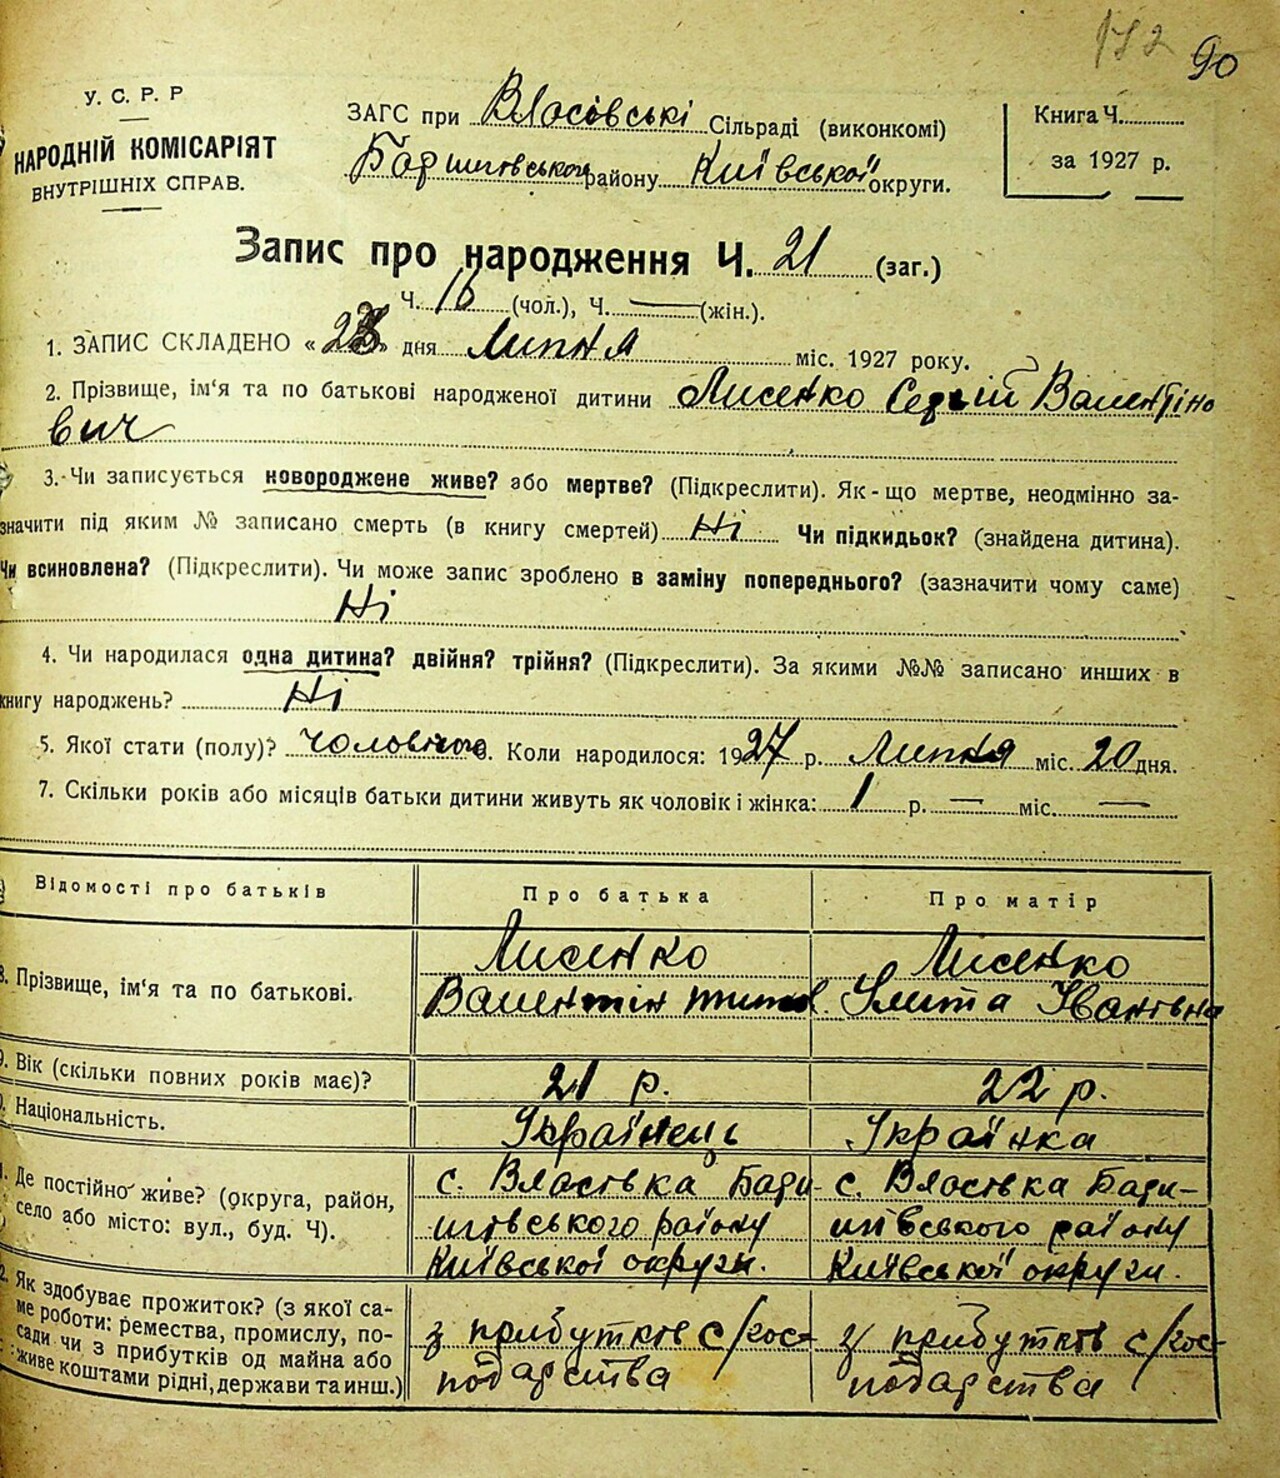 172 90
У. С. Р. Р
НАРОДНІЙ КОМІСАРІЯТ
ВНУТРІШНІХ СПРАВ.
ЗАГС при Власівські Сільраді (виконкомі)
Баришівського району Київської округи.
Книга Ч.
за 1927 р.
Запис про народження Ч. 21 (заг.)
Ч. 16 (чол.), Ч. — (жін.).
1. ЗАПИС СКЛАДЕНО «23» дня Липня міс. 1927 року.
2. Прізвище, ім'я та по батькові народженої дитини Лисенко Сергій Валентіно
вич
3. Чи записується новороджене живе? або мертве? (Підкреслити). Як-що мертве, неодмінно за-
значити під яким № записано смерть (в книгу смертей) Ні Чи підкидьок? (знайдена дитина).
Чи всиновлена? (Підкреслити). Чи може запис зроблено в заміну попереднього? (зазначити чому саме)
Ні
4. Чи народилася одна дитина? двійня? трійня? (Підкреслити). За якими №№ записано инших в
книгу народжень? Ні
5. Якої стати (полу)? чоловічого 6. Коли народилося: 1927 р. Липня міс. 20 дня.
7. Скільки років або місяців батьки дитини живуть як чоловік і жінка: 1 р. — міс. —
Відомості про батьків Про батька Про матір
8. Прізвище, ім'я та по батькові.
Лисенко
Валентін Титов.
Лисенко
Улита Іванівна
9. Вік (скільки повних років має)? 21 р. 22 р.
Національність. Українець Українка
Де постійно живе? (округа, район,
село або місто: вул., буд. Ч).
с. Власівка Бари-
шівського району
Київської округи.
с. Власівка Бари-
шівського району
Київської округи.
Як здобуває прожиток? (з якої са-
ме роботи: ремества, промислу, по-
сади чи з прибутків од майна або
живе коштами рідні, держави та инш.)
з прибутків с/гос-
подарства
з прибутків с/гос-
подарства